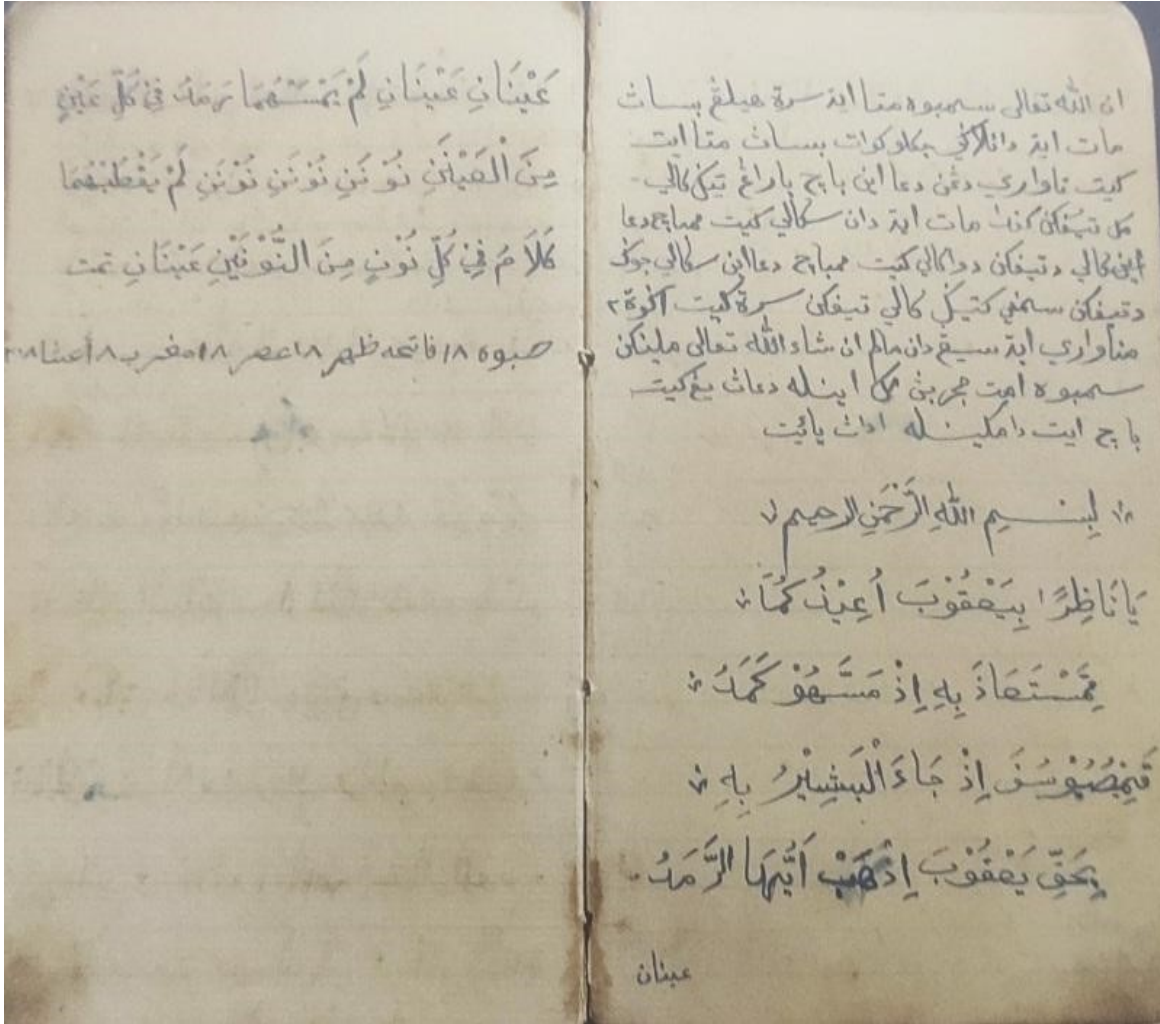 ان الله تعالى سمبوه متا ايد سرة هيلڠ بساث
مات ايد جكلو كوات بساث متا ايت
كيت تاواري دڠن دعا اين باچ باراڠ تيݢ كالي
مك تيفكن كفد مات ايد دان سكالي كيت ممباچ دعا
اين كالي دتيفكن دواكالي كيت ممباچ دعااين سكالي جوك
دتيفكن سمڤي كتيݢ كالي تيفكن سرة كيت
مناواري ايد سيڠ دان مالم ان شاء الله تعالى ملينكن
سمبوه امت مجربث مك اينله دعاث يڠ كيت
باچ ايت دامكينله اداث يائيت
بِسْمِ اللهِ الرَّحْمَنِ الرحيم
يَا نَاظِرًا بِيَعْقُوْبَ اُعِيْذُ كُمَا
مِمَّسْتَعَاذَ بِهِ اِذْ مَسَّهُوْ كَمَدُ
قَمِيْصُ يُوْسُفَ اِذْ جَاءَ الْبَشِيْرُ بِهِ
بِحَقِّ يَعْقُوْبَ اِذْهَبْ اَيُّهَا الرَّمَدُ
عينان
عَيْنَانِ عَيْنَانِ لَمْ يَمْسَسْهُمَا رَمَدُ فِيْ كُلِّ عَيْنٍ
مِنَ الْعَيْنَيْنِ نُوْنَنِ نُوْنَنِ نُوْنَنِ لَمْ يَقْطَبْهُمَا
كَلاَ مُ فِيْ كُلِّ نُوْنٍ مِنَ النُّوْنَيْنِ عَيْنَانِ تمت
صبوه ١٨ فاتحه ظهر ١٨ عصر ١٨ مغرب ١٨ عشا ١٨